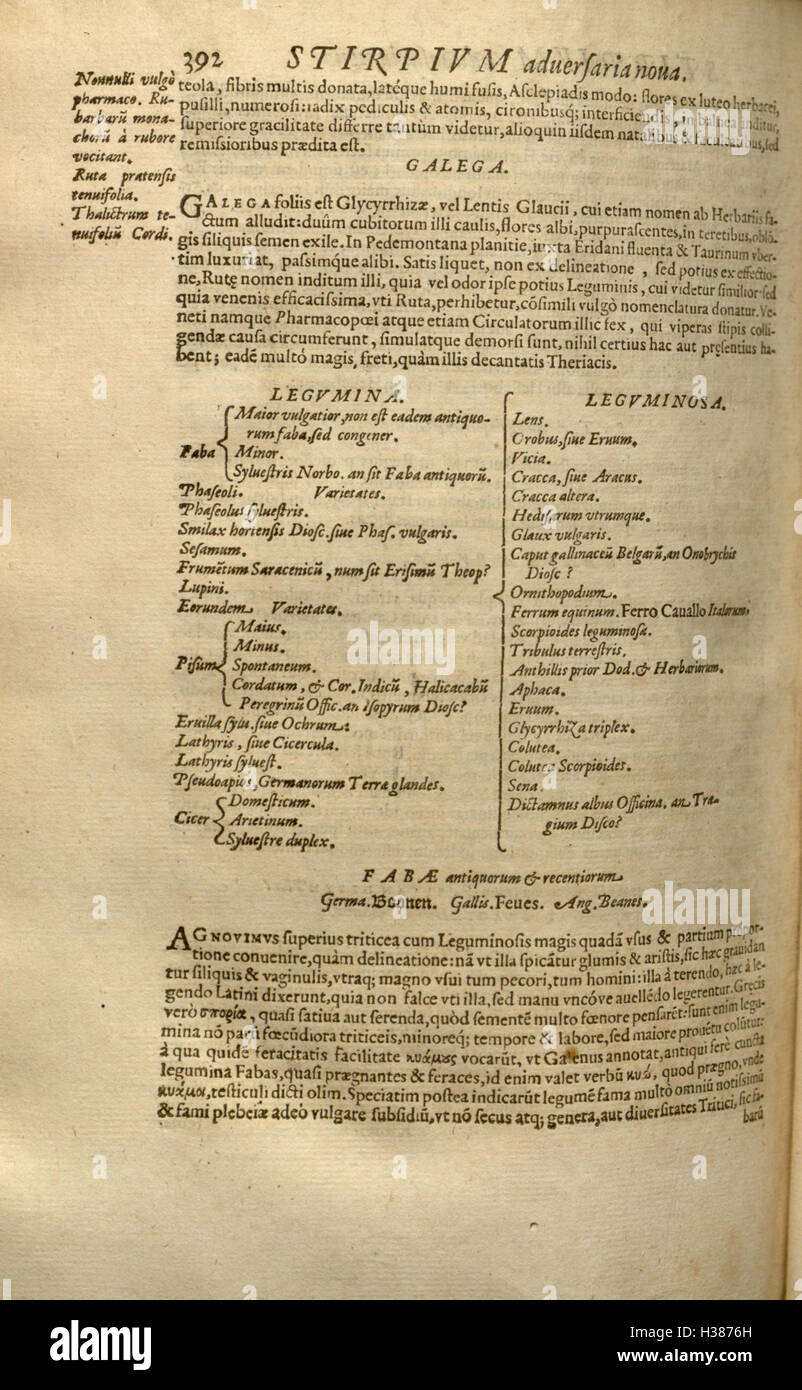 392 STIRPIVM aduerſaria noua.
Nonnulli vulgò
pharmaco. Ru-
barbarū mona-
chorū à rubore
vocitant.
Ruta pratensis
tenuifolia.
Thalictrum te-
nuifoliū Cordi.
teola, fibris multis donata, latéque humi fuſis, Aſclepiadis modo: flores ex luteo herbacei,
puſilli, numeroſi: radix pediculis & atomis, cironibusq; interficiendis,
ſuperiore gracilitate differre tantum videtur, alioquin iiſdem natalibus & ſed
remiſſioribus prædita eſt.
GALEGA.
GALEGA foliis eſt Glycyrrhizæ, vel Lentis Glaucii, cui etiam nomen ab Herbariis fa-
ctum alludit: duûm cubitorum illi caulis, flores albi, purpuraſcentes, in teretibus, oblō-
gis ſiliquis ſemen exile. In Pedemontana planitie, iuxta Eridani fluenta & Taurinum vber-
tim luxuriat, paſsimque alibi. Satis liquet, non ex delineatione, ſed potius ex effectio-
ne, Rutę nomen inditum illi, quia vel odor ipſe potius Leguminis, cui videtur ſimilior: ſed
quia venenis efficaciſsima, vti Ruta, perhibetur, cōſimili vulgò nomenclatura donatur. Ve-
neti namque Pharmacopœi atque etiam Circulatorum illic fex, qui viperas ſtipis colli-
gendæ cauſa circumferunt, ſimulatque demorſi ſunt, nihil certius hac aut preſentius ha-
bent; eadē multò magis, freti, quàm illis decantatis Theriacis.
LEGVMINA.
Faba
Maior vulgatior, non eſt eadem antiquo-
rum faba, ſed congener.
Minor.
Sylueſtris Norbo. an ſit Faba antiquorū.
Phaſeoli. Varietates.
Phaſeolus ſylueſtris.
Smilax hortenſis Dioſc. ſiue Phaſ. vulgaris.
Seſamum.
Frumētum Saracenicū, num ſit Eriſimū Theop?
Lupini.
Eorundem Varietates.
Piſum
Maius.
Minus.
Spontaneum.
Cordatum, & Cor. Indicū, Halicacabū
Peregrinū Offic. an Iſopyrum Dioſc?
Eruilla ſylu. ſiue Ochrum.
Lathyris, ſiue Cicercula.
Lathyris ſylueſt.
Pſeudoapios, Germanorum Terræ glandes.
Cicer
Domeſticum.
Arietinum.
Sylueſtre duplex.
LEGVMINOSA.
Lens.
Orobus, ſiue Eruum.
Vicia.
Cracca, ſiue Aracus.
Cracca altera.
Hediſarum vtrumque.
Glaux vulgaris.
Caput gallinaceū Belgarū, an Onobrychis
Dioſc?
Ornithopodium.
Ferrum equinum. Ferro Cauallo Italorum.
Scorpioides leguminoſa.
Tribulus terreſtris.
Anthillis prior Dod. & Herbariorum.
Aphaca.
Eruum.
Glycyrrhiza triplex.
Colutea.
Colutea Scorpioides.
Sena.
Dictamnus albus Officina. an Tra-
gium Diſco?
FABÆ antiquorum & recentiorum
Germa. Boonen. Gallis. Feues. Ang. Beanes.
AGNOVIMVS ſuperius triticea cum Leguminoſis magis quadā vſus & partium
tione conuenire, quàm delineatione: nā vt illa ſpicātur glumis & ariſtis, ſic hæc grauidan
tur ſiliquis & vaginulis, vtraq; magno vſui tum pecori, tum homini: illa à terendo, hæc à le-
gendo Latini dixerunt, quia non falce vti illa, ſed manu vncóve auellēdo legerentur. Grecis
vero σπορία, quaſi ſatiua aut ſerenda, quòd ſementē multo fœnore penſaret: ſunt enim legu-
mina nō parū fœcūdiora triticeis, minoreq; tempore & labore, ſed maiore prouētu colūtur:
à qua quidē feracitatis facilitate κυάμους vocarūt, vt Galenus annotat, antiqui ferè cuncta
legumina Fabas, quaſi prægnantes & feraces, id enim valet verbū κυῶ, quod prægno, vnde
κυάμοι, teſticuli dicti olim. Speciatim poſtea indicarūt legumē fama multò omniū notiſſimū
& fami plebeiæ adeò vulgare ſubſidiū, vt nō ſecus atq; genera, aut diuerſitates Tritici, ſic fa-
barū
alamy
H3876H
www.alamy.com